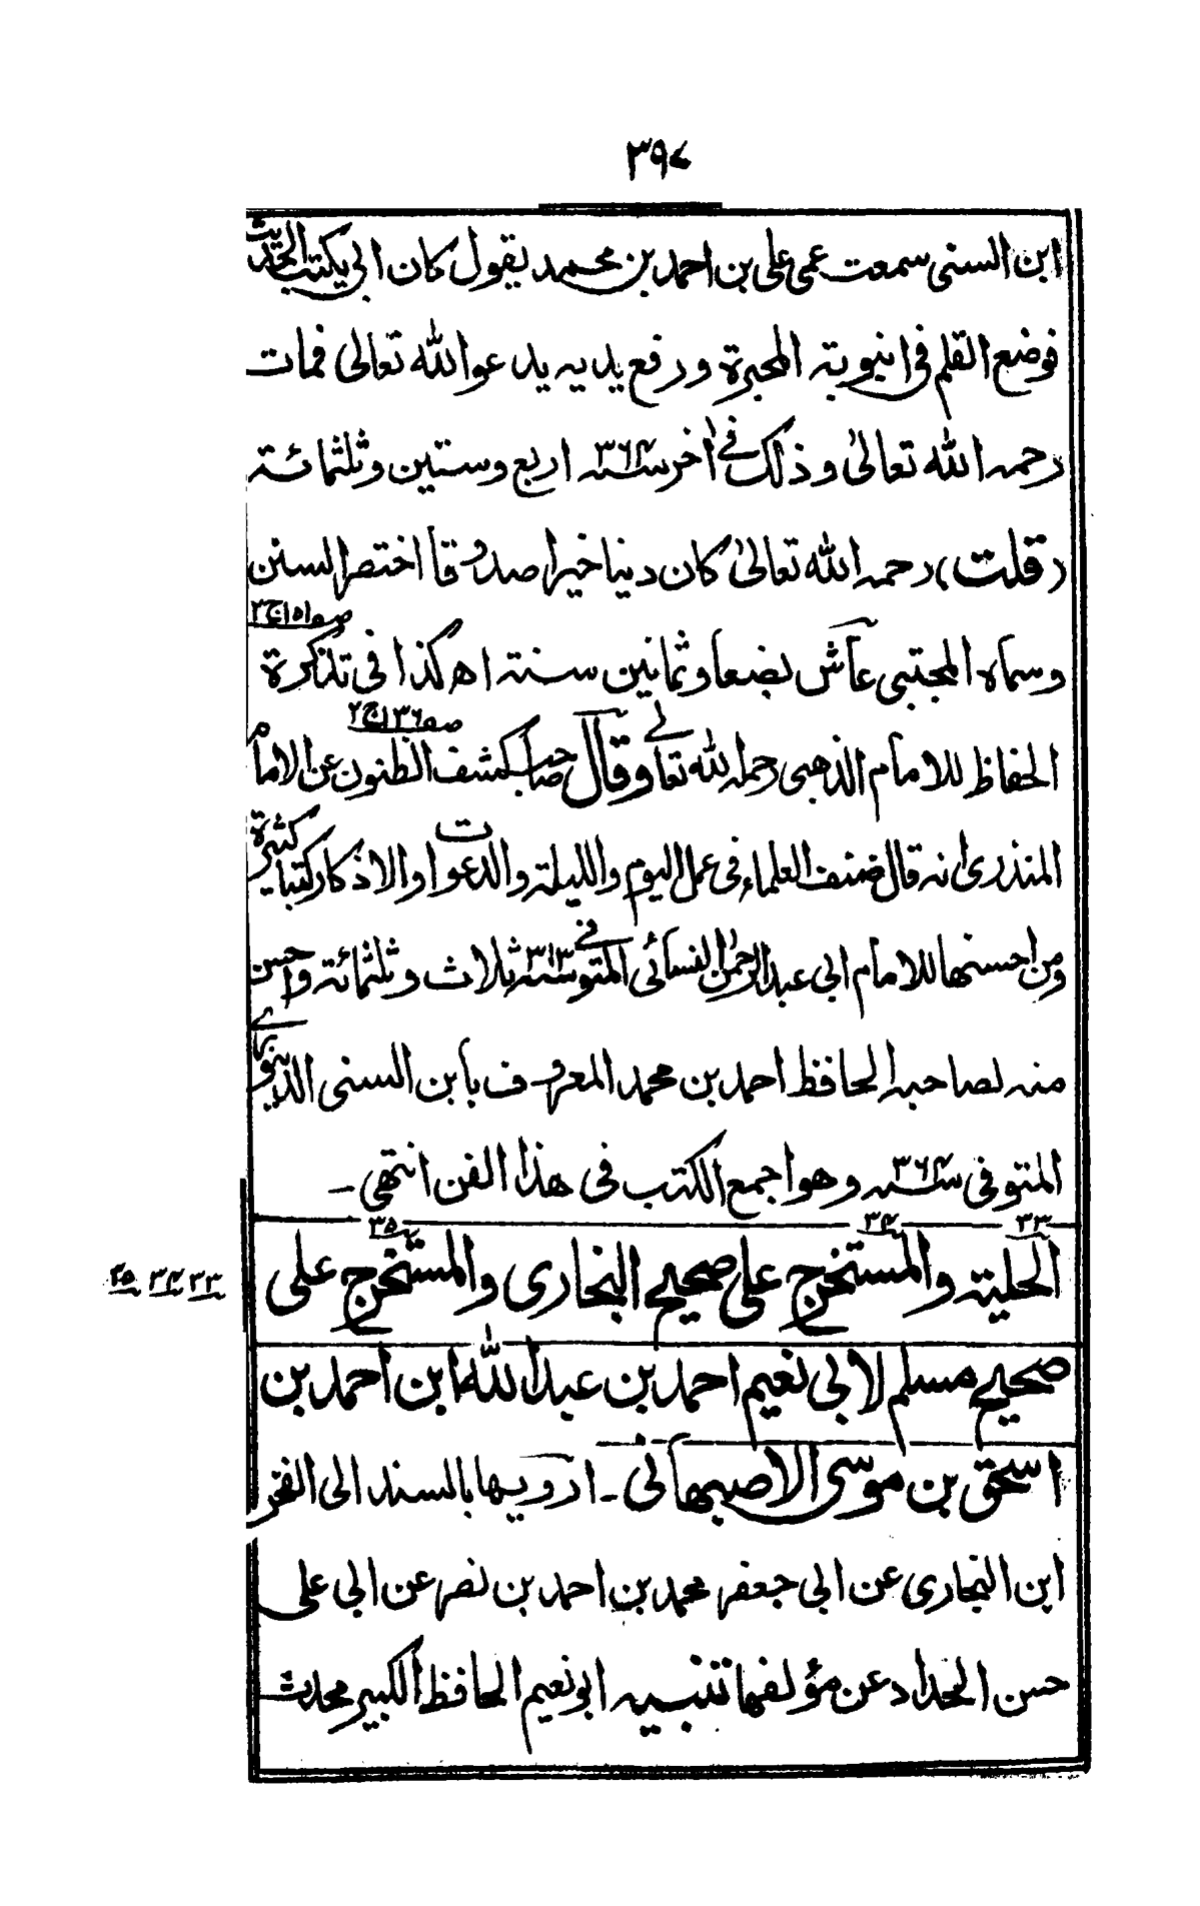 ٣٩٧
ابن السنى سمعت عمى على بن احمد بن محمد يقول كان ابى يكتب الحديث
فوضع القلم فى انبوبة المحبرة ورفع يديه يدعو الله تعالى فمات
رحمه الله تعالىٰ وذلك فى اٰخر سنه ٣٦٤ اربع وستين وثلثمائة
(قلت) رحمه الله تعالىٰ كان دينا خيرا صدوقا اختصر السنن
وسماه المجتبى عاش بضعا وثمانين سنة اھ كذا فى تذكرة صـ١٥١ج٣
الحفاظ للامام الذهبى رحمه الله تعالى وقال صاحب كشف الظنون صـ١٣٦ج٢ عن الامام
المنذرى انه قال صنف العلماء فى عمل اليوم والليلة والدعوات والاذكار كتبا كثيرة
ومن احسنها للامام ابى عبد الرحمٰن النسائى المتوفى سنه ٣١٣ ثلاث وثلثمائة واحسن
منه لصاحبه الحافظ احمد بن محمد المعروف بابن السنى الدينورى
المتوفى سنه ٣٦٤ وهو اجمع الكتب فى هذا الفن انتهى ـ
٣٣ الحلية و ٣٤ المستخرج على صحيح البخارى و ٣٥ المستخرج على
٣٣ ٣٤ ٣٥
صحيح مسلم لابى نعيم احمد بن عبد الله ابن احمد بن
اسحٰق بن موسى الاصبهانى ـ ارويها بالسند الى الفخر
ابن البخارى عن ابى جعفر محمد بن احمد بن نصر عن ابى على
حسن الحداد عن مؤلفها تنبيه ابو نعيم الحافظ الكبير محدث